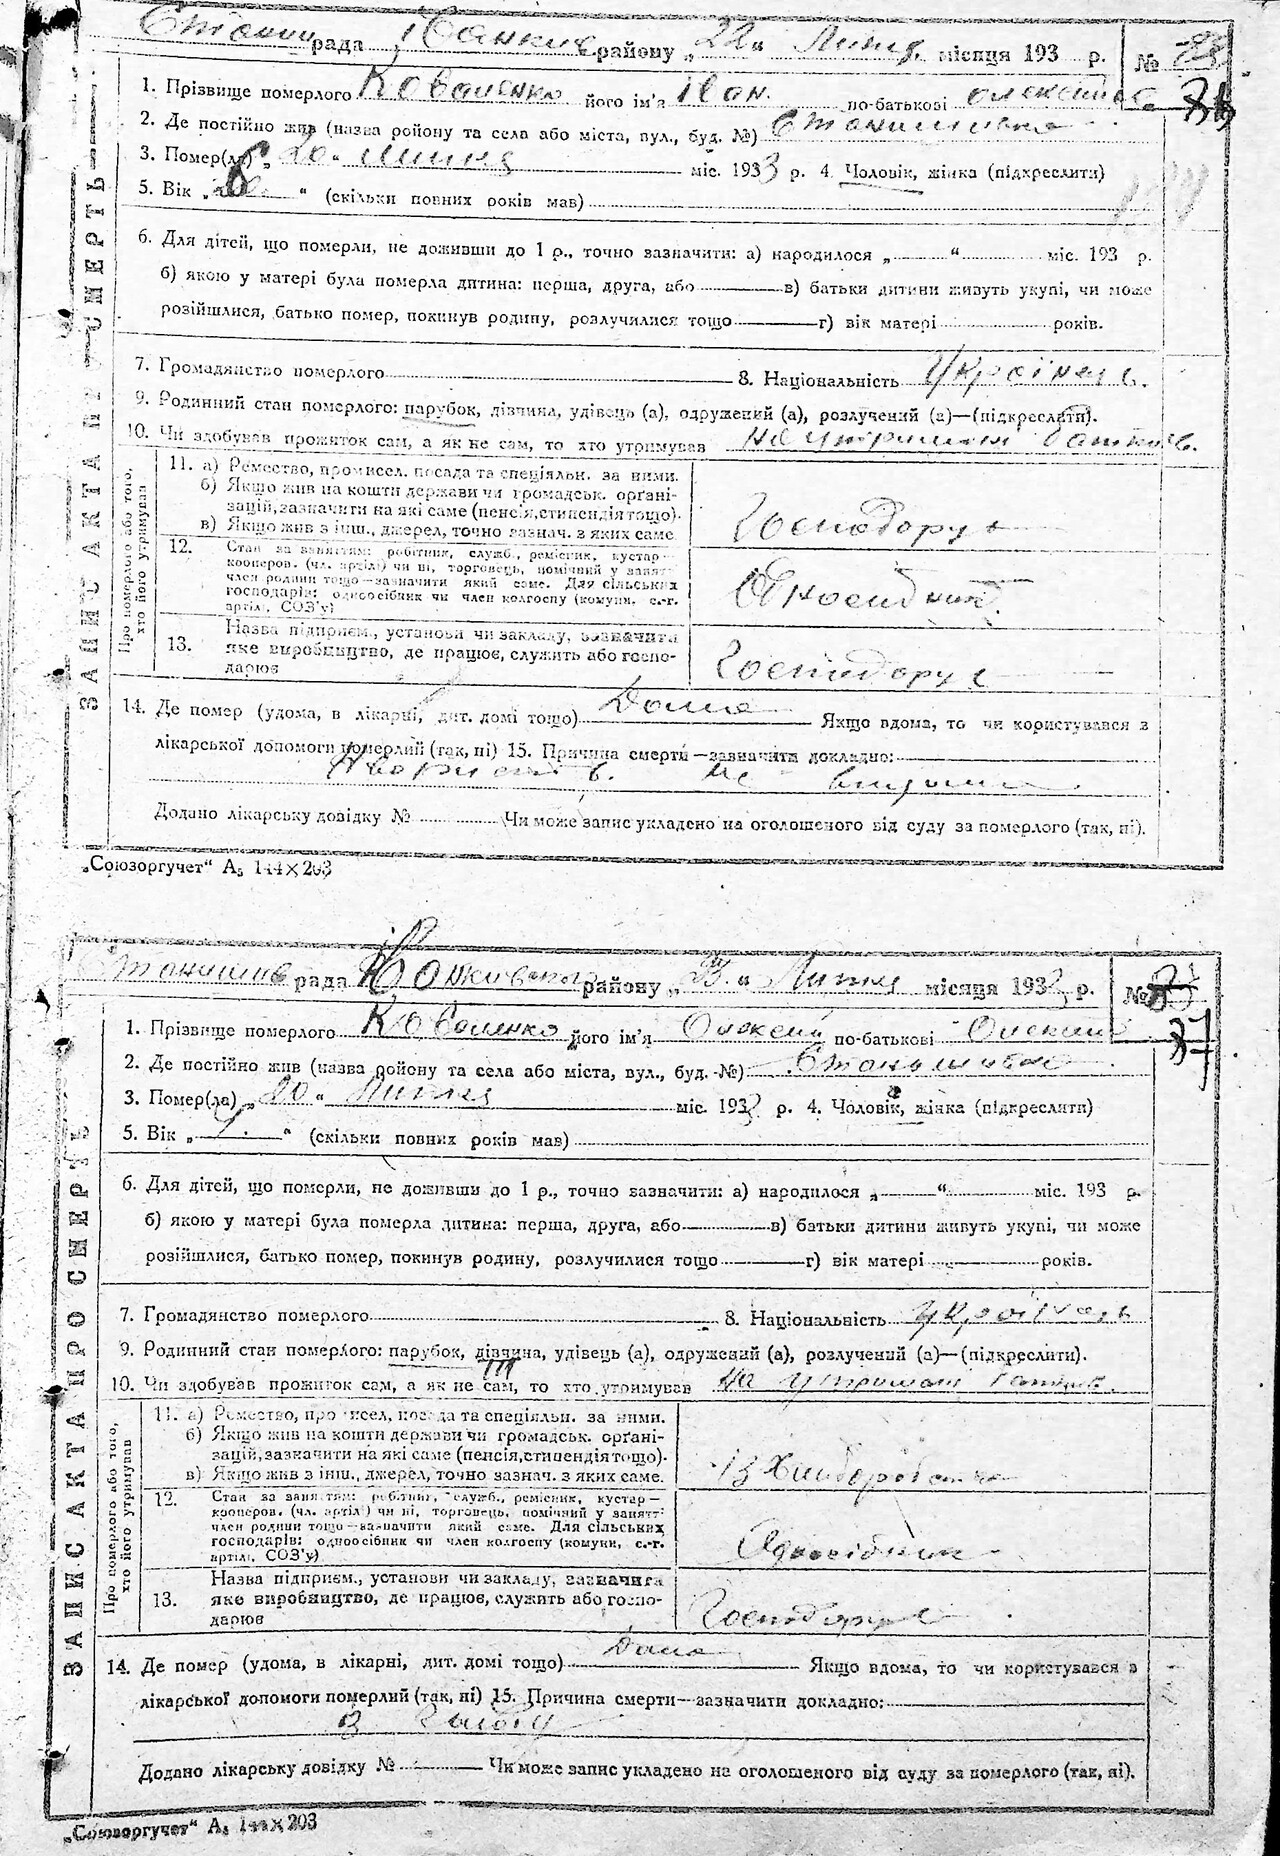 рада Іванків району „22“ Липня місяця 193 р. №
1. Прізвище померлого Коваленко його ім'я Іван по-батькові
2. Де постійно жив (назва району та села або міста, вул., буд. №) Станишівка
3. Помер(ла) „20“ Липня міс. 1933 р. 4. Чоловік, жінка (підкреслити)
5. Вік „6“ (скільки повних років мав)
6. Для дітей, що померли, не доживши до 1 р., точно зазначити: а) народилося „ “ міс. 193 р.
б) якою у матері була померла дитина: перша, друга, або в) батьки дитини живуть укупі, чи може
розійшлися, батько помер, покинув родину, розлучилися тощо г) вік матері років.
7. Громадянство померлого 8. Національність Українець.
9. Родинний стан померлого: парубок, дівчина, удівець (а), одружений (а), розлучений (а)—(підкреслити).
10. Чи здобував прожиток сам, а як не сам, то хто утримував на утриманні батьків.
ЗАПИС АКТА ПРО СМЕРТЬ
Про померлого або того,
хто його утримував
11. а) Ремество, промисел, посада та спеціяльн. за ними.
б) Якщо жив на кошти держави чи громадськ. орґані-
зацій, зазначити на які саме (пенсія, стипендія тощо).
в) Якщо жив з інш., джерел, точно зазнач. з яких саме
Господарує
12. Стан за заняттям: робітник, служб., ремісник, кустар—
кооперов. (чл. артілі) чи ні, торговець, помічний у занят-
член родини тощо—зазначити який саме. Для сільських
господарів: одноосібник чи член колгоспу (комуни, с.-г.
артілі, СОЗ'у)
13. Назва підприєм., установи чи закладу, зазначити
яке виробництво, де працює, служить або госпо-
дарює
Господарує
14. Де помер (удома, в лікарні, дит. домі тощо) Дома Якщо вдома, то чи користувався з
лікарської допомоги померлий (так, ні) 15. Причина смерти—зазначити докладно:
не
Додано лікарську довідку № Чи може запис укладено на оголошеного від суду за померлого (так, ні).
„Союзоргучет“ А₅ 144×203
рада району „ “ Липня місяця 1933 р. №
37
1. Прізвище померлого Коваленко його ім'я Олексій по-батькові
2. Де постійно жив (назва району та села або міста, вул., буд. №) Станишівка
3. Помер(ла) „20“ Липня міс. 1933 р. 4. Чоловік, жінка (підкреслити)
5. Вік „ “ (скільки повних років мав)
6. Для дітей, що померли, не доживши до 1 р., точно зазначити: а) народилося „ “ міс. 193 р.
б) якою у матері була померла дитина: перша, друга, або в) батьки дитини живуть укупі, чи може
розійшлися, батько помер, покинув родину, розлучилися тощо г) вік матері років.
7. Громадянство померлого 8. Національність Українець
9. Родинний стан померлого: парубок, дівчина, удівець (а), одружений (а), розлучений (а)—(підкреслити).
10. Чи здобував прожиток сам, а як не сам, то хто утримував на утримані батьків.
ЗАПИС АКТА ПРО СМЕРТЬ
Про померлого або того,
хто його утримував
11. а) Ремество, промисел, посада та спеціяльн. за ними.
б) Якщо жив на кошти держави чи громадськ. орґані-
зацій, зазначити на які саме (пенсія, стипендія тощо).
в) Якщо жив з інш., джерел, точно зазнач. з яких саме.
із
12. Стан за заняттям: робітник, служб., ремісник, кустар—
кооперов. (чл. артілі) чи ні, торговець, помічний у занятт-
член родини тощо—зазначити який саме. Для сільських
господарів: одноосібник чи член колгоспу (комуни, с.-г.
артілі, СОЗ'у)
Одноосібник
13. Назва підприєм., установи чи закладу, зазначити
яке виробництво, де працює, служить або госпо-
дарює
Господарує
14. Де помер (удома, в лікарні, дит. домі тощо) Дома Якщо вдома, то чи користувався з
лікарської допомоги померлий (так, ні) 15. Причина смерти—зазначити докладно:
З голоду
Додано лікарську довідку № Чи може запис укладено на оголошеного від суду за померлого (так, ні).
„Союзоргучет“ А₅ 144×203